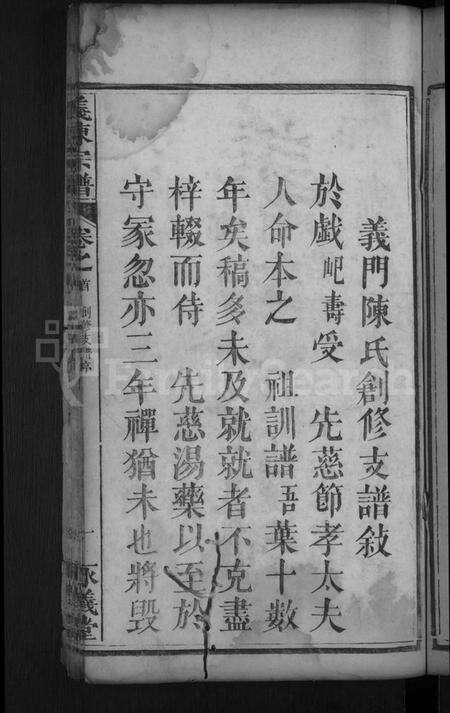 義門陳氏創修支譜敍
於戲屺壽受 先慈節孝太夫
人命本之 祖訓譜吾葉十數
年矣稿多未及就就者不克盡
梓輟而侍 先慈湯藥以至於
守冢忽亦三年禫猶未也將毀
義陳宗譜
卷之首
創修支譜
一
義堂
FamilySearch